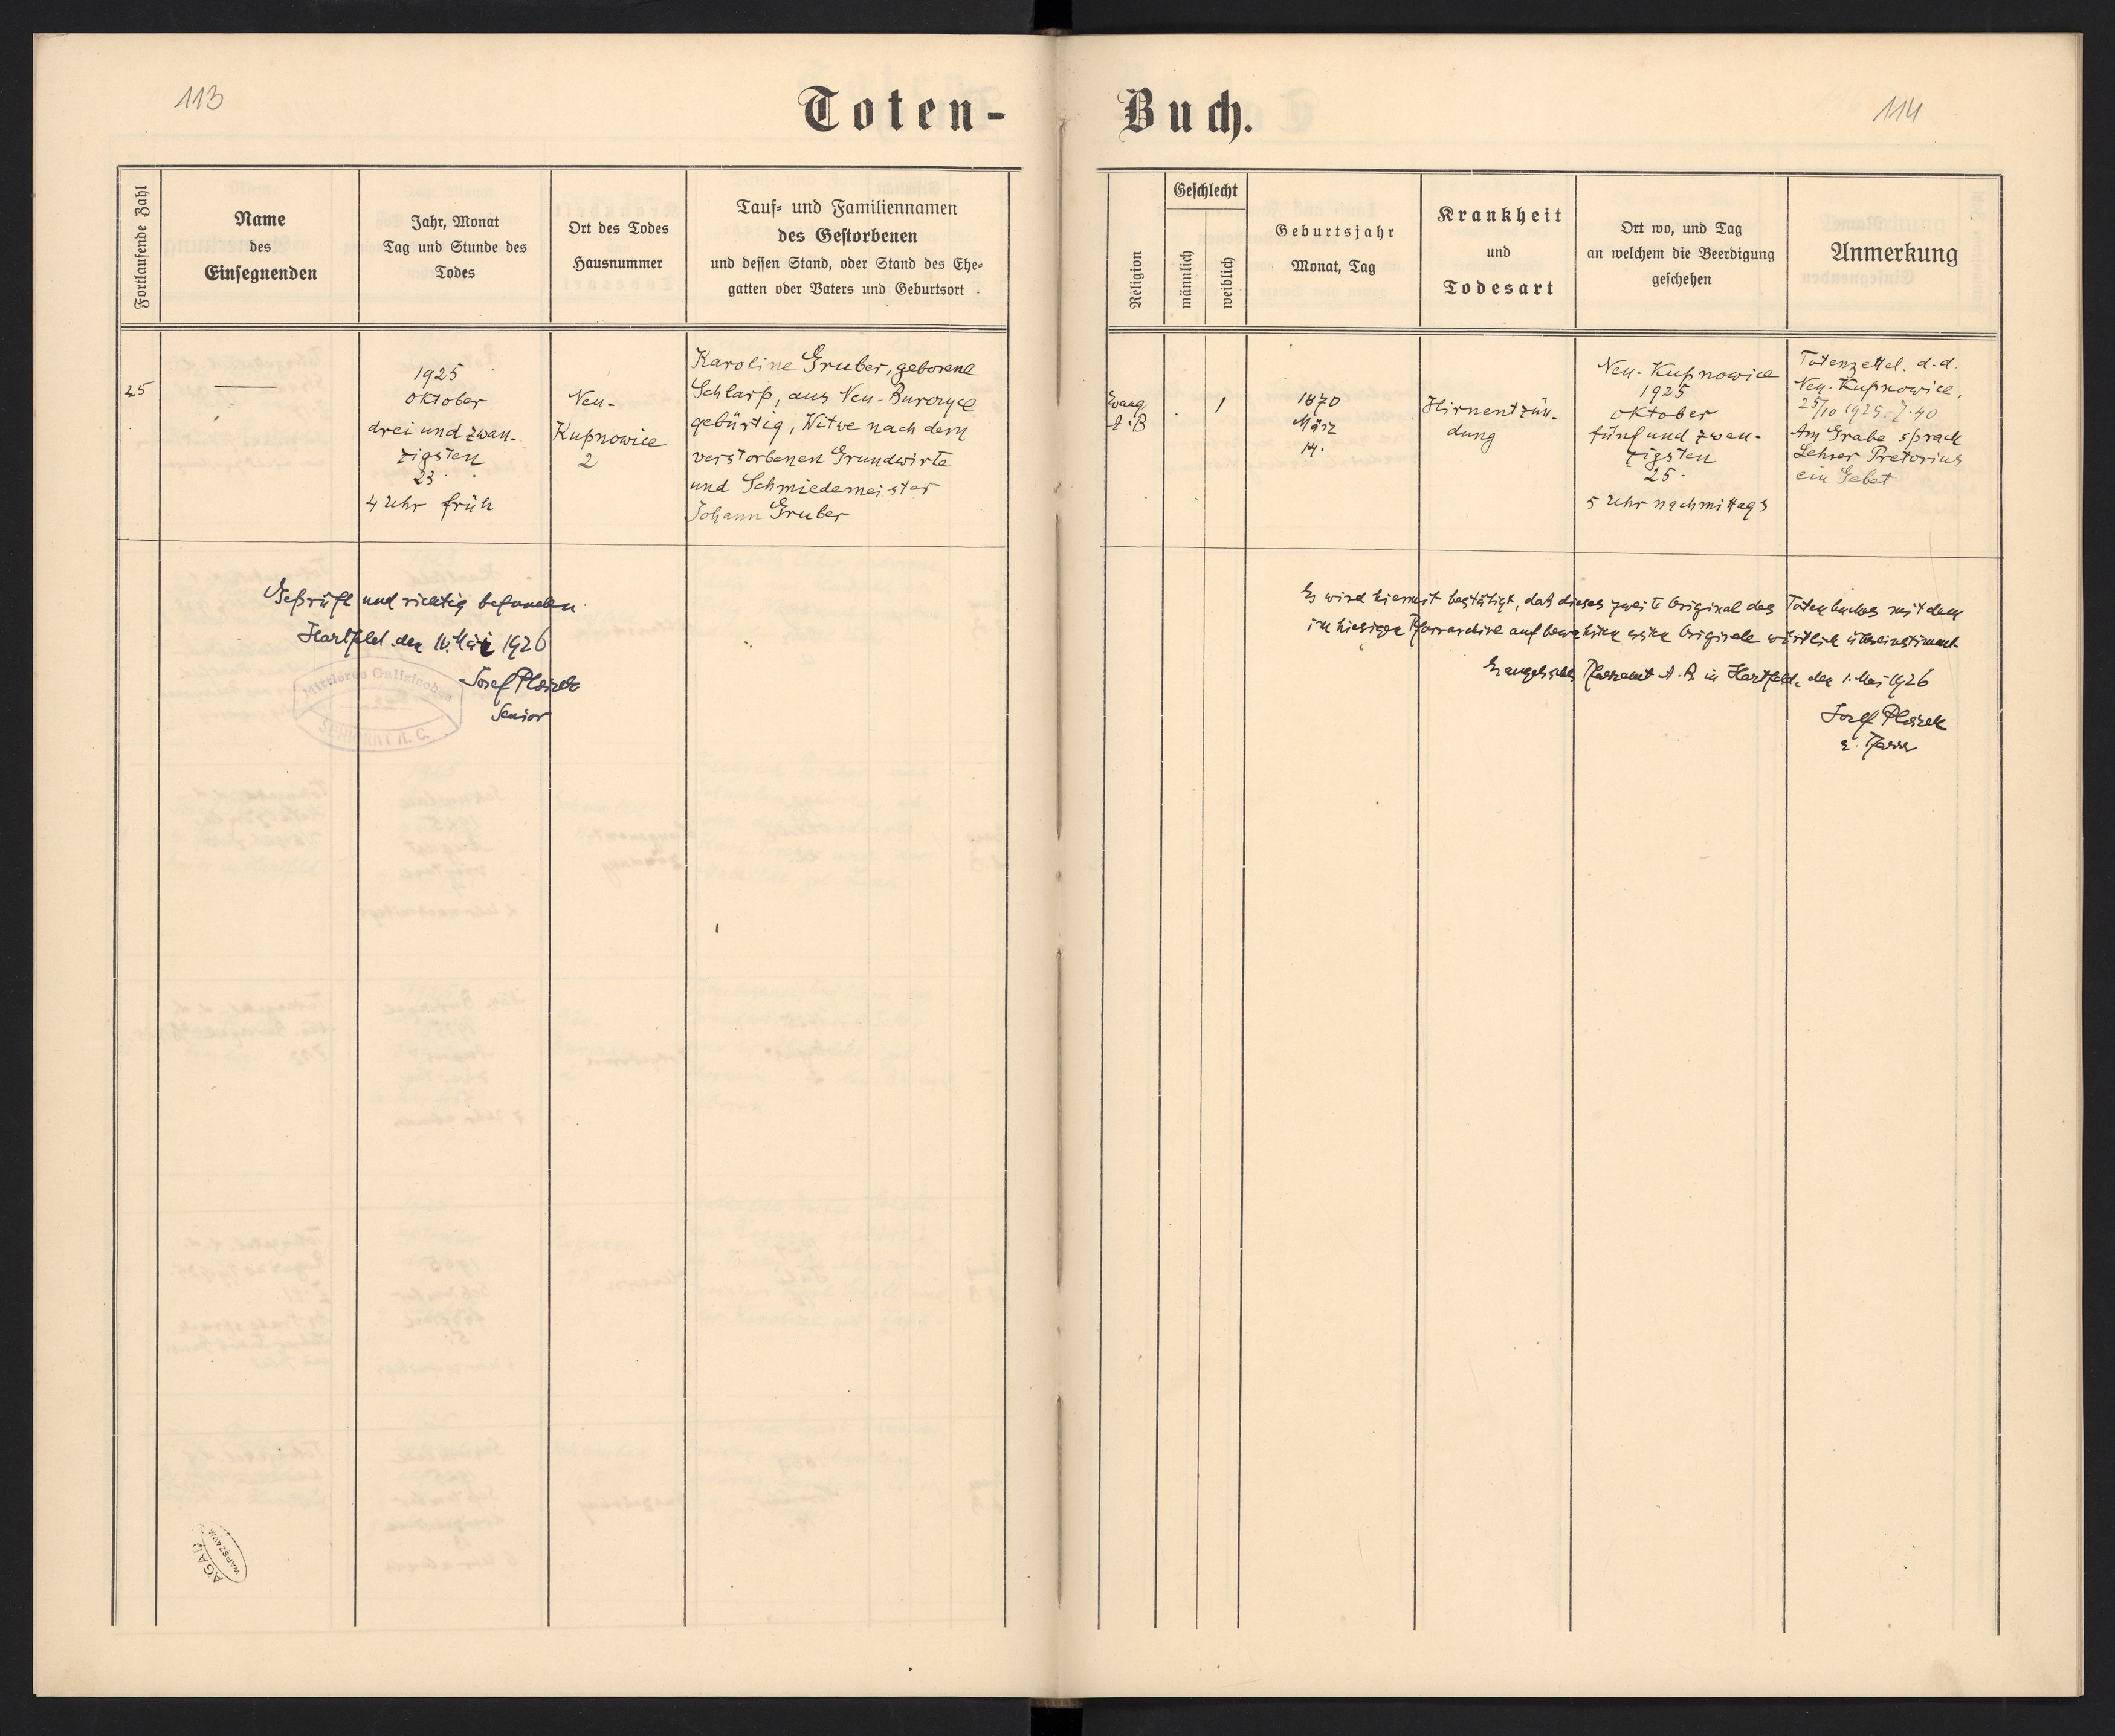 113
Toten-
Fortlaufende Zahl
Name
des
Einsegnenden
Jahr, Monat
Tag und Stunde des
Todes
Ort des Todes
Hausnummer
Tauf- und Familiennamen
des Gestorbenen
und dessen Stand, oder Stand des Ehe-
gatten oder Vaters und Geburtsort
25
1925
Oktober
drei und zwan-
zigsten
23.
4 Uhr früh
Neu-
Kupnowice
2
Karoline Gruber, geborene
Schlarp, aus Neu-Burczyce
gebürtig, Witwe nach dem
verstorbenen Grundwirte
und Schmiedemeister
Johann Gruber
Geprüft und richtig befunden
Hartfeld den 11. Mai 1926
Josef Ploszek
Senior
Mittleres Galizisches
SENIORAT A. C.
AGAD
WARSZAWA
Buch.
114
Religion
Geschlecht
männlich
weiblich
Geburtsjahr
Monat, Tag
Krankheit
und
Todesart
Ort wo, und Tag
an welchem die Beerdigung
geschehen
Anmerkung
Evang
A.B
1
1870
März
14.
Hirnentzün-
dung
Neu-Kupnowice
1925
Oktober
fünf und zwan-
zigsten
25.
5 Uhr nachmittags
Totenzettel. d.d.
Neu-Kupnowice,
25/10 1925. Z. 40
Am Grabe sprach
Lehrer Pretorius
ein Gebet
Es wird hiermit bestätigt, daß dieses zweite Original des Totenbuches mit dem
im hiesigen Pfarrarchive aufbewahrten ersten Originale wörtlich übereinstimmt.
Evangelisches Pfarramt A. B. in Hartfeld, den 1. Mai 1926
Josef Ploszek
e. Pfarrer